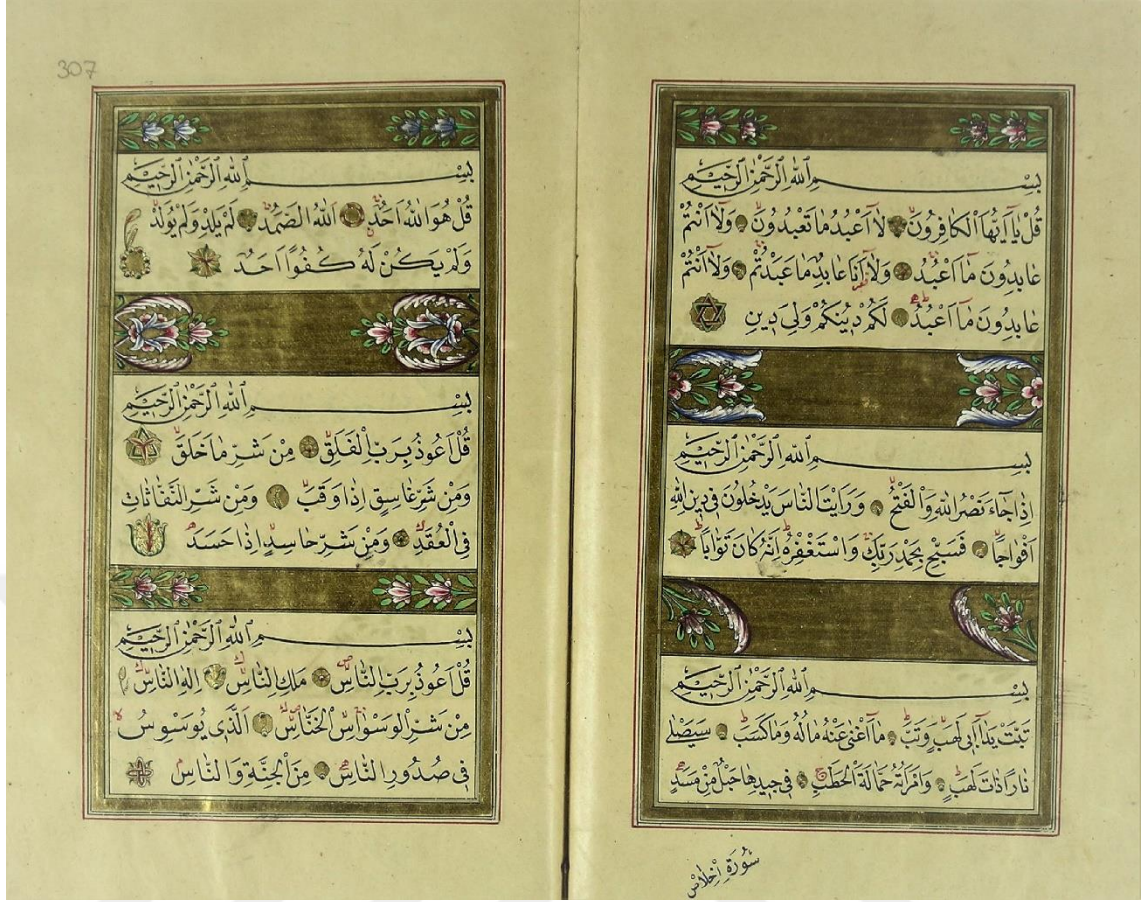 بِسْمِ اللهِ الرَّحْمٰنِ الرَّحِيمِ
قُلْ يَآ اَيُّهَا الْكَافِرُونَ لَآ اَعْبُدُ مَا تَعْبُدُونَ وَلَآ اَنْتُمْ
عَابِدُونَ مَآ اَعْبُدُ وَلَآ اَنَا عَابِدٌ مَا عَبَدْتُمْ وَلَآ اَنْتُمْ
عَابِدُونَ مَآ اَعْبُدُ لَكُمْ دِينُكُمْ وَلِيَ دِينِ
بِسْمِ اللهِ الرَّحْمٰنِ الرَّحِيمِ
اِذَا جَآءَ نَصْرُ اللهِ وَالْفَتْحُ وَرَاَيْتَ النَّاسَ يَدْخُلُونَ فِي دِينِ اللهِ
اَفْوَاجًا فَسَبِّحْ بِحَمْدِ رَبِّكَ وَاسْتَغْفِرْهُ اِنَّهُ كَانَ تَوَّابًا
بِسْمِ اللهِ الرَّحْمٰنِ الرَّحِيمِ
تَبَّتْ يَدَآ اَبِي لَهَبٍ وَتَبَّ مَآ اَغْنٰى عَنْهُ مَالُهُ وَمَا كَسَبَ سَيَصْلٰى
نَارًا ذَاتَ لَهَبٍ وَامْرَاَتُهُ حَمَّالَةَ الْحَطَبِ فِي جِيدِهَا حَبْلٌ مِنْ مَسَدٍ
سُورَةِ اِخْلَاص
307
بِسْمِ اللهِ الرَّحْمٰنِ الرَّحِيمِ
قُلْ هُوَ اللهُ اَحَدٌ اَللهُ الصَّمَدُ لَمْ يَلِدْ وَلَمْ يُولَدْ
وَلَمْ يَكُنْ لَهُ كُفُوًا اَحَدٌ
بِسْمِ اللهِ الرَّحْمٰنِ الرَّحِيمِ
قُلْ اَعُوذُ بِرَبِّ الْفَلَقِ مِنْ شَرِّ مَا خَلَقَ
وَمِنْ شَرِّ غَاسِقٍ اِذَا وَقَبَ وَمِنْ شَرِّ النَّفَّاثَاتِ
فِي الْعُقَدِ وَمِنْ شَرِّ حَاسِدٍ اِذَا حَسَدَ
بِسْمِ اللهِ الرَّحْمٰنِ الرَّحِيمِ
قُلْ اَعُوذُ بِرَبِّ النَّاسِ مَلِكِ النَّاسِ اِلٰهِ النَّاسِ
مِنْ شَرِّ الْوَسْوَاسِ الْخَنَّاسِ اَلَّذِي يُوَسْوِسُ
فِي صُدُورِ النَّاسِ مِنَ الْجِنَّةِ وَالنَّاسِ